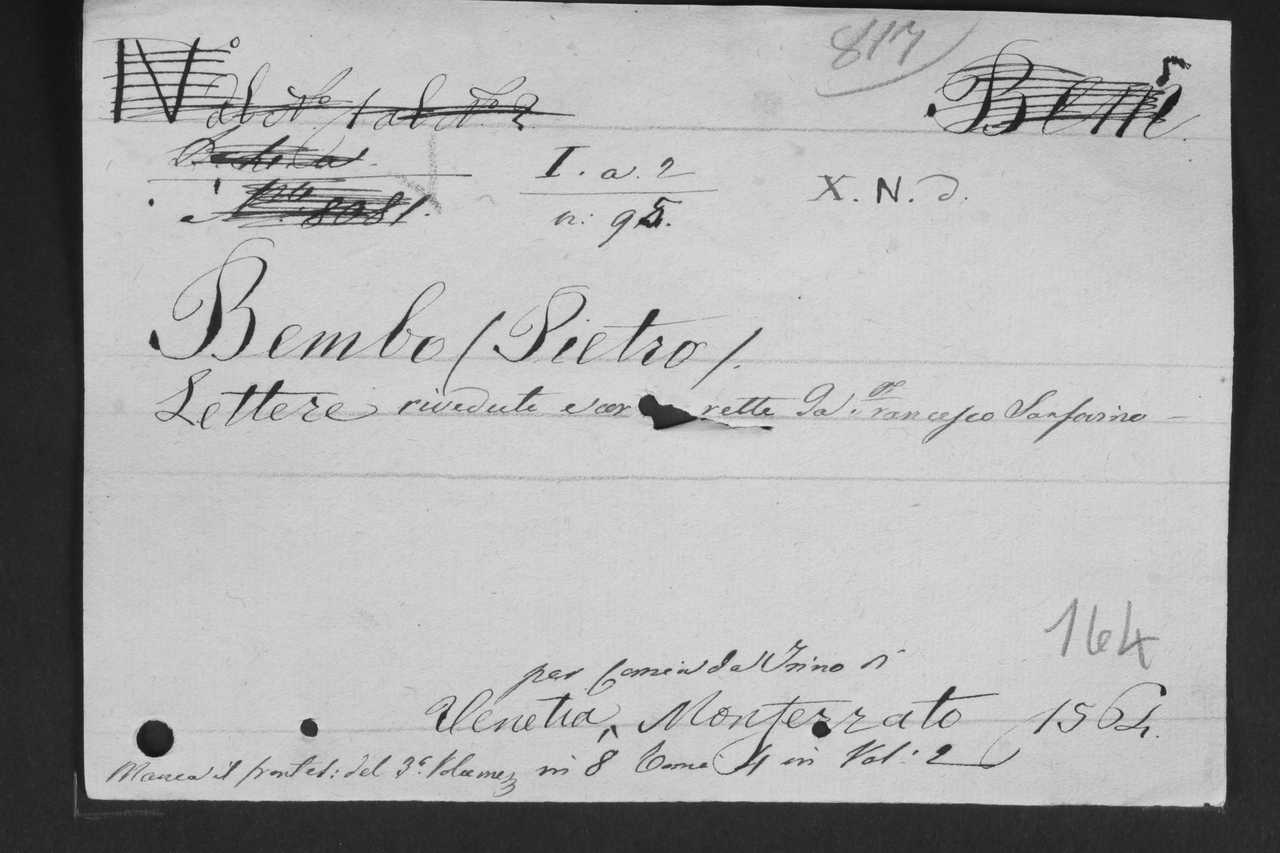 817
N°
Bem
I. a. 2
n: 95.
X. N. d.
8081.
Bembo (Pietro).
Lettere rivedute e cor rette da Francesco Sansovino
164
per Comin da Trino di
Venetia, Monferrato 1564.
Manca il frontes: del 3° Volume in 8° Tomi 4 in Vol: 2